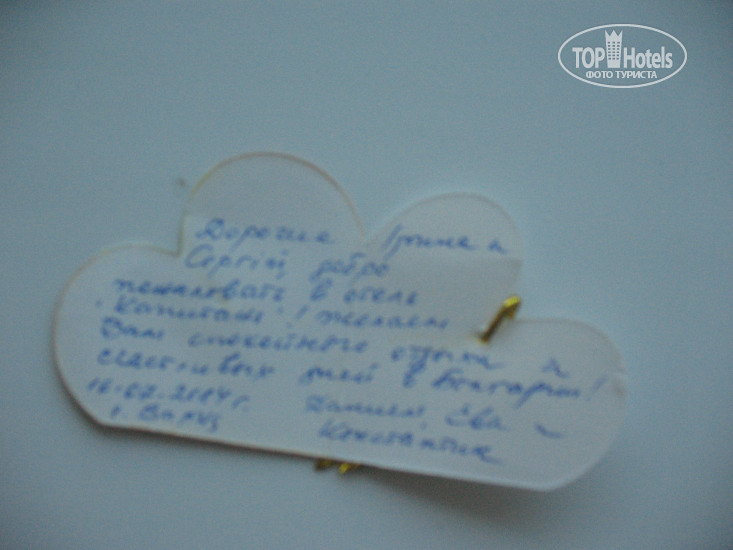 TOP Hotels
ФОТО ТУРИСТА
Дорогие Iрина и
Сергій, добро
пожаловать в отель
"Капитан"! Желаем
Вам спокойного отдыха и
счастливых дней в Болгарии!
16.07.2004 г. Даниел, Ева
г. Варна Константин